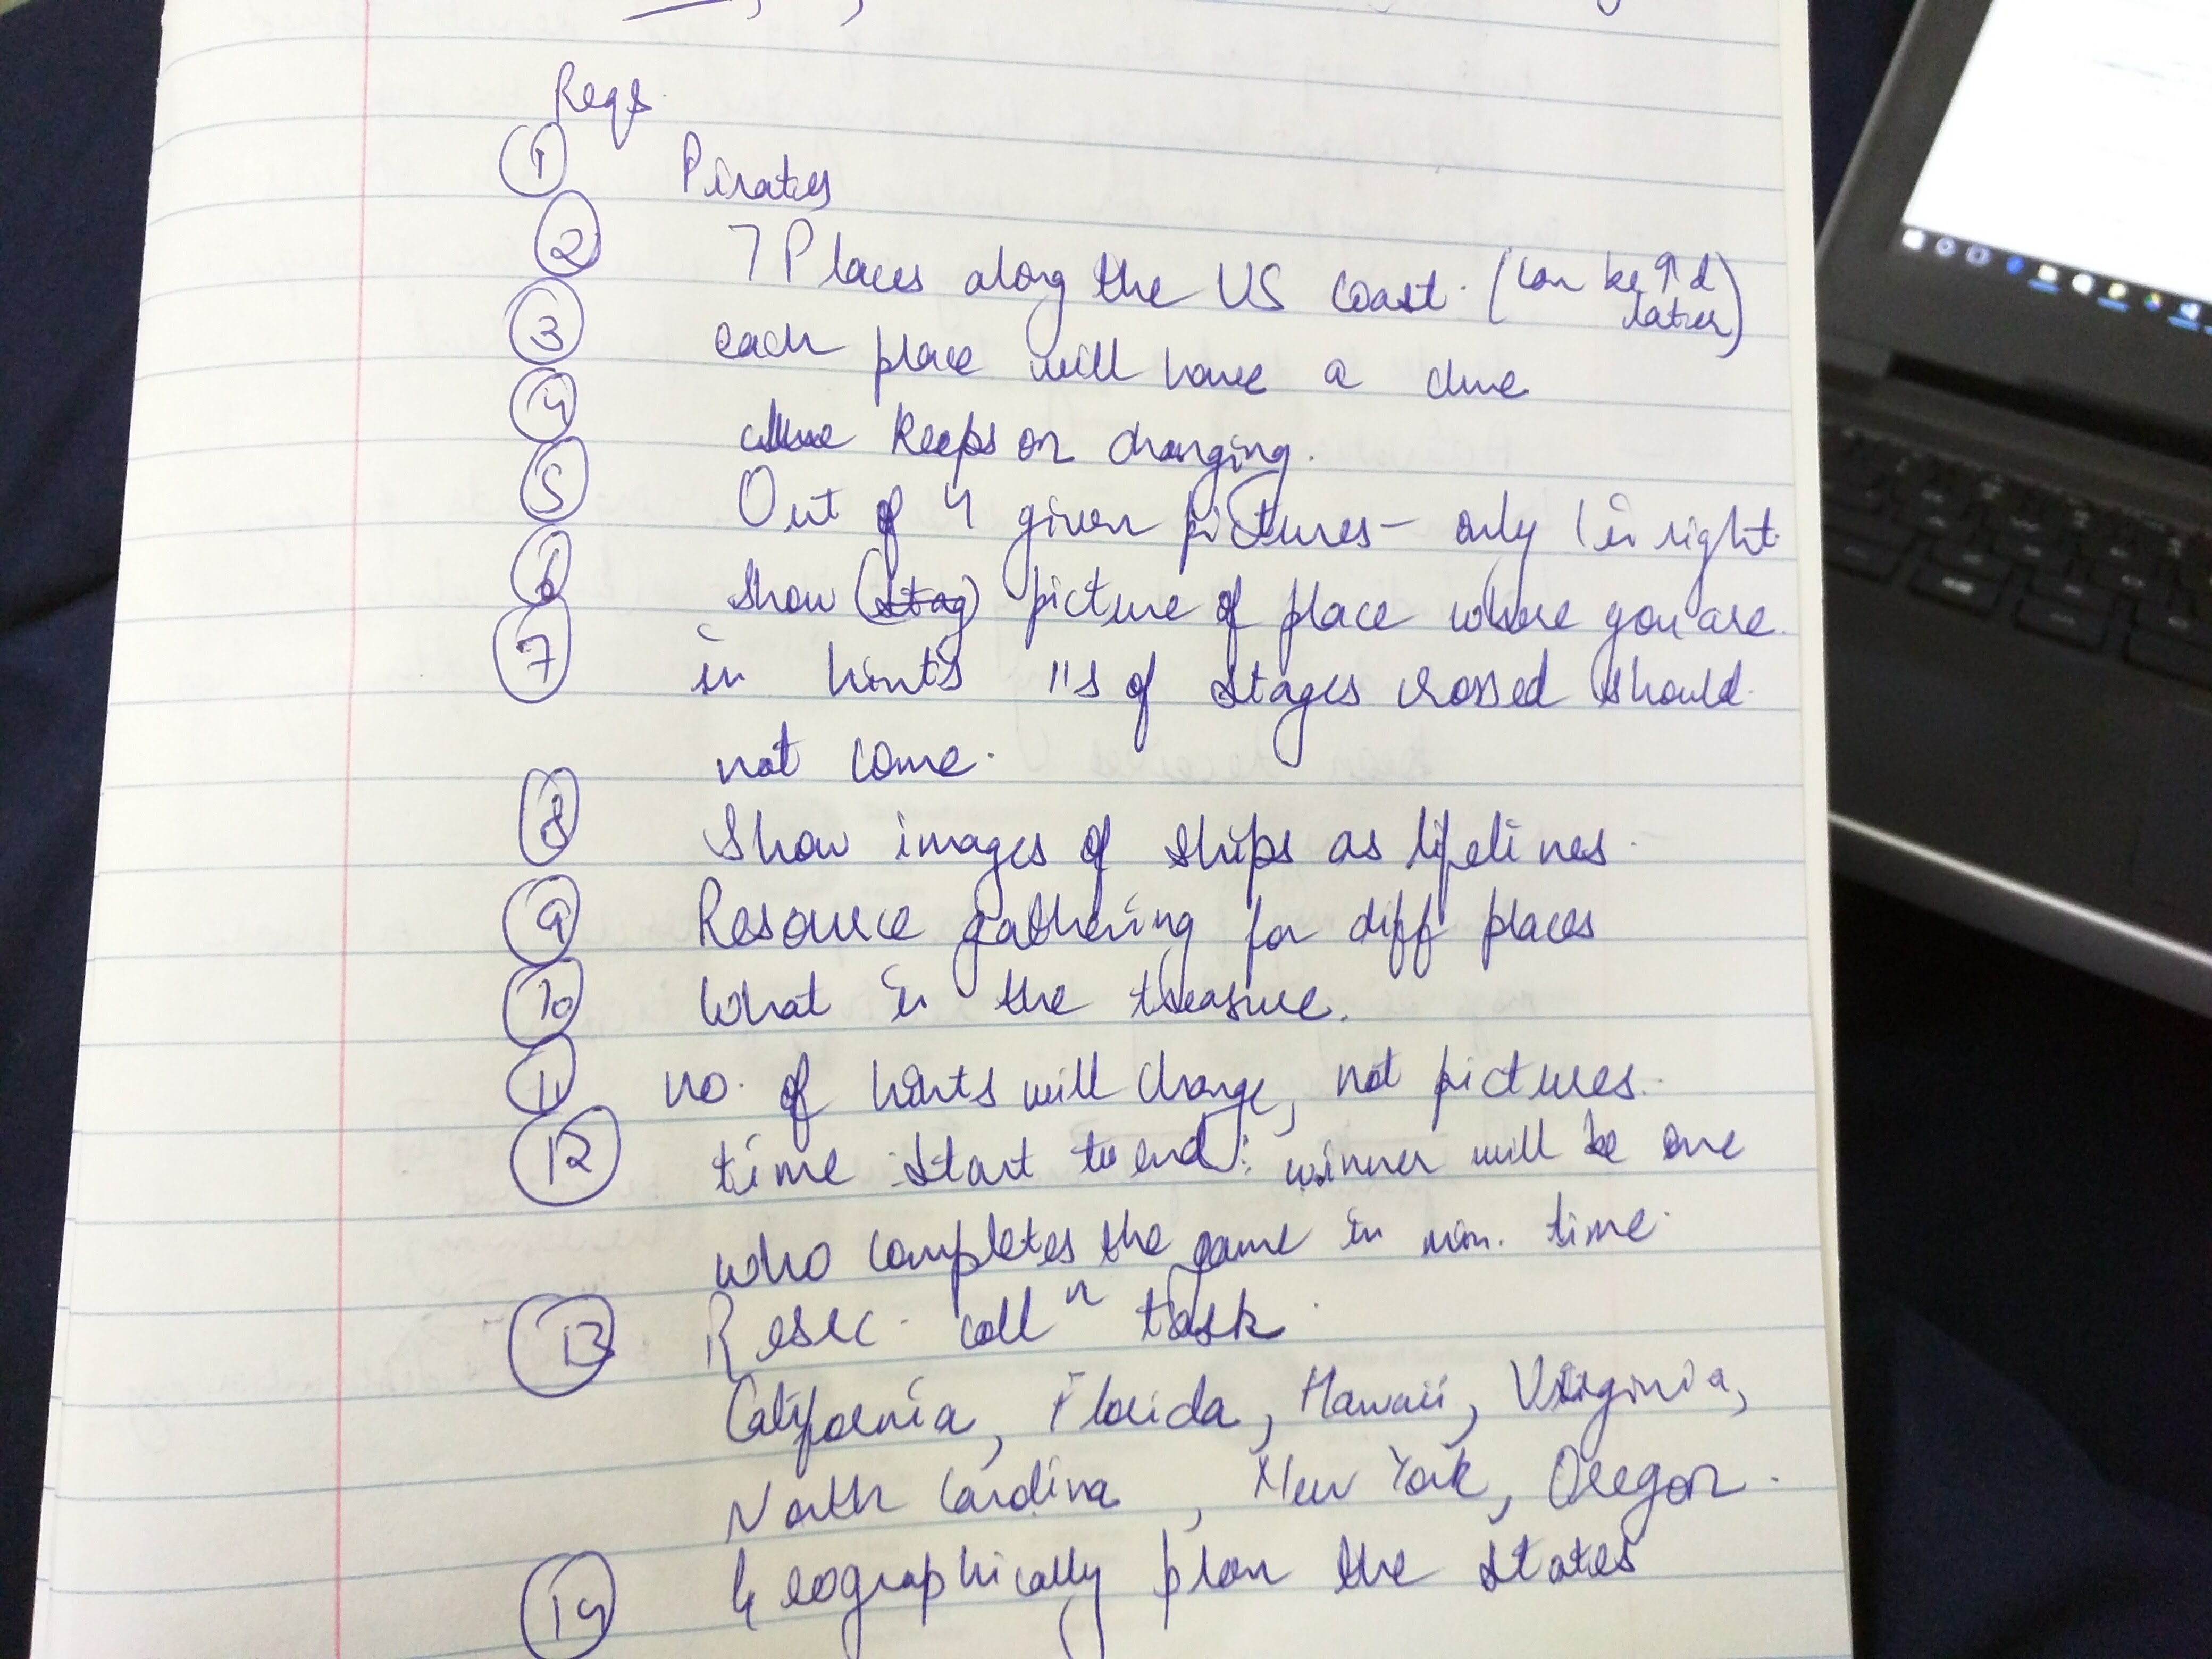 Reqs.
① Pirates
② 7 Places along the US coast. (can be ↑d later)
③ each place will have a clue
④ clue keeps on changing.
⑤ Out of 4 given pictures - only 1 is right.
⑥ Show (Stag) picture of place where you are.
⑦ in hints "s of stages crossed should
not come.
⑧ Show images of ships as lifelines.
⑨ Resource gathering for diff places
⑩ What is the treasure.
⑪ no. of hints will change, not pictures.
⑫ time start to end: winner will be one
who completes the game in min. time.
⑬ Resrc. collⁿ task.
California, Florida, Hawaii, Virginia,
North Carolina, New York, Oregon.
⑭ Geographically plan the states